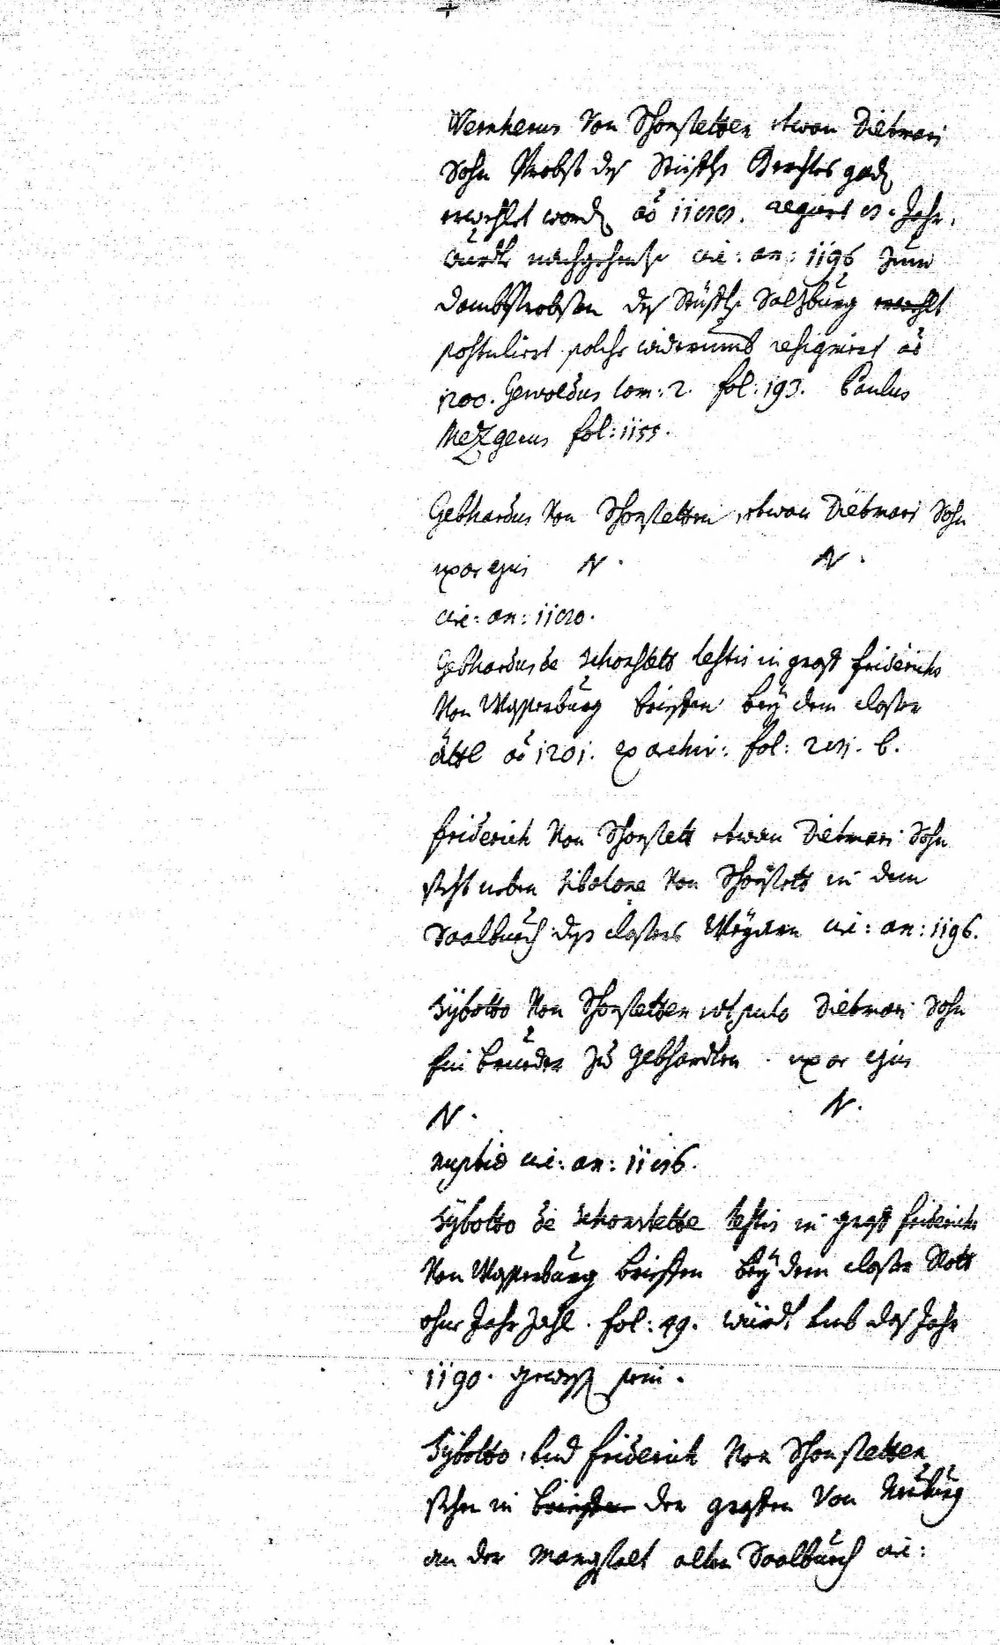 Wernherus Von Schonstetten etwan Dietmari
Sohn Probst des Stüffts Berchtesgadn
erwehlt wordn aõ 11888. regiert 8. Jahr.
wurdt nachgehents circ: an: 1196 zum
dombProbsten des Stüffts Salzburg erwehlt
postuliert solche widerumb resigniert aõ
1200. Gewoldus tom: 2. fol: 193. Paulus
Mezgerus fol: 1155.
Gebhardus Von Schonstetten etwan Dietmari Sohn
uxor ejus N. N.
circ: an: 1180.
Gebhardus de Schonstett testis in graff friderichs
Von Wasserburg brieffen bey dem closter
ättl aõ 1201. ex archiv: fol: 281. b.
friderich Von Schonstett etwan Dietmari Sohn
steht neben Sibotone Von Schonstett in dem
Saalbuech des closters Weyarn circ: an: 1196.
Sybotto Von Schonstetten ut puto Dietmari Sohn
ein brueder zu Gebhardten. uxor ejus
N. N.
nuptiae circ: an: 1186.
Sybotto de Schonstette testis in graff friderichs
Von Wasserburg brieffen bey dem closter Rott
ohne Jahr Zahl. fol: 49. würdt umb das Jahr
1190. gewest sein.
Sybotto und friderich Von Schonstetten
stehn in brieffen der graffen Von Neuburg
an der Mangfalt alten Saalbuech circ: